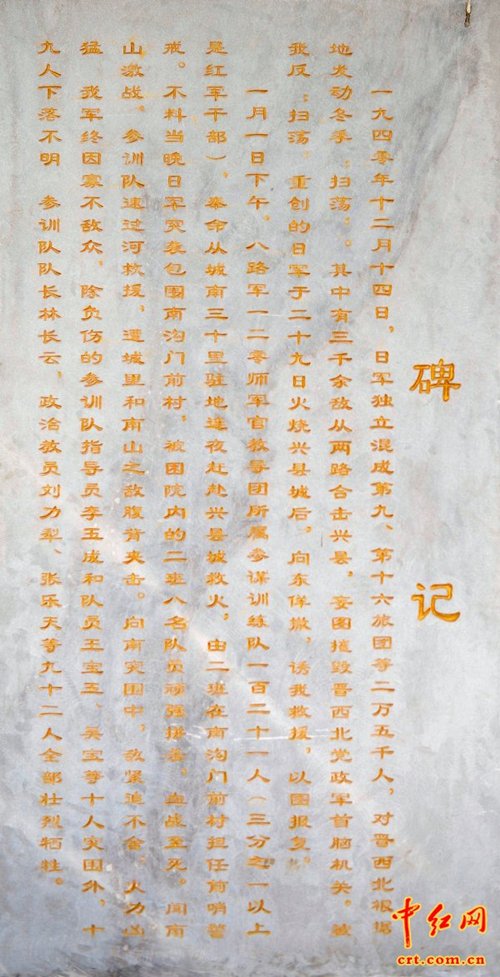 碑记
一九四零年十二月十四日，日军独立混成第九、第十六旅团等二万五千人，对晋西北根据
地发动冬季“扫荡”。其中有三千余敌从两路合击兴县，妄图摧毁晋西北党政军首脑机关。被
我反“扫荡”重创的日军于二十九日火烧兴县城后，向东佯撤，诱我救援，以图报复。
一月一日下午，八路军一二零师军官教导团所属参谋训练队一百二十一人（三分之一以上
是红军干部），奉命从城南三十里驻地连夜赶赴兴县城救火，由二班在南沟门前村担任前哨警
戒。不料当晚日军突袭包围南沟门前村，被困院内的二班八名队员顽强拼杀，血战至死。闻南
山激战，参训队速过河救援，遭城里和南山之敌腹背夹击。向南突围中，敌紧追不舍，火力凶
猛，我军终因寡不敌众，除负伤的参训队指导员李玉成和队员王宝玉、吴宝等十人突围外，十
九人下落不明，参训队队长林长云，政治教员刘力犁、张乐天等九十二人全部壮烈牺牲。
中红网
crt.com.cn